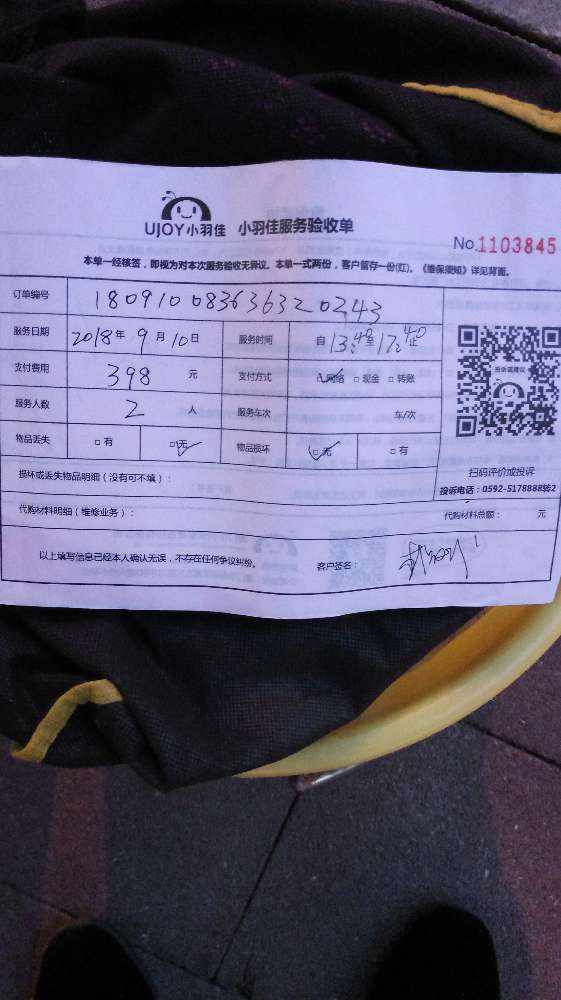 UJOY小羽佳 小羽佳服务验收单
No.1103845
本单一经核签，即视为对本次服务验收无异议。本单一式两份，客户留存一份(红)。《维保须知》详见背面。
订单编号 180910083636320243
服务日期 2018年 9月 10日 服务时间 自13:40至17:40止
支付费用 398 元 支付方式 ☑网络 □现金 □转账
服务人数 2 人 服务车次 车/次
物品丢失 □有 ☑无 物品损坏 ☑无 □有
投诉或建议
扫码评价或投诉
投诉电话：0592-5178888转2
损坏或丢失物品明细（没有可不填）：
代购材料明细（维修业务）： 代购材料总额： 元
以上填写信息已经本人确认无误，不存在任何争议纠纷。 客户签名：